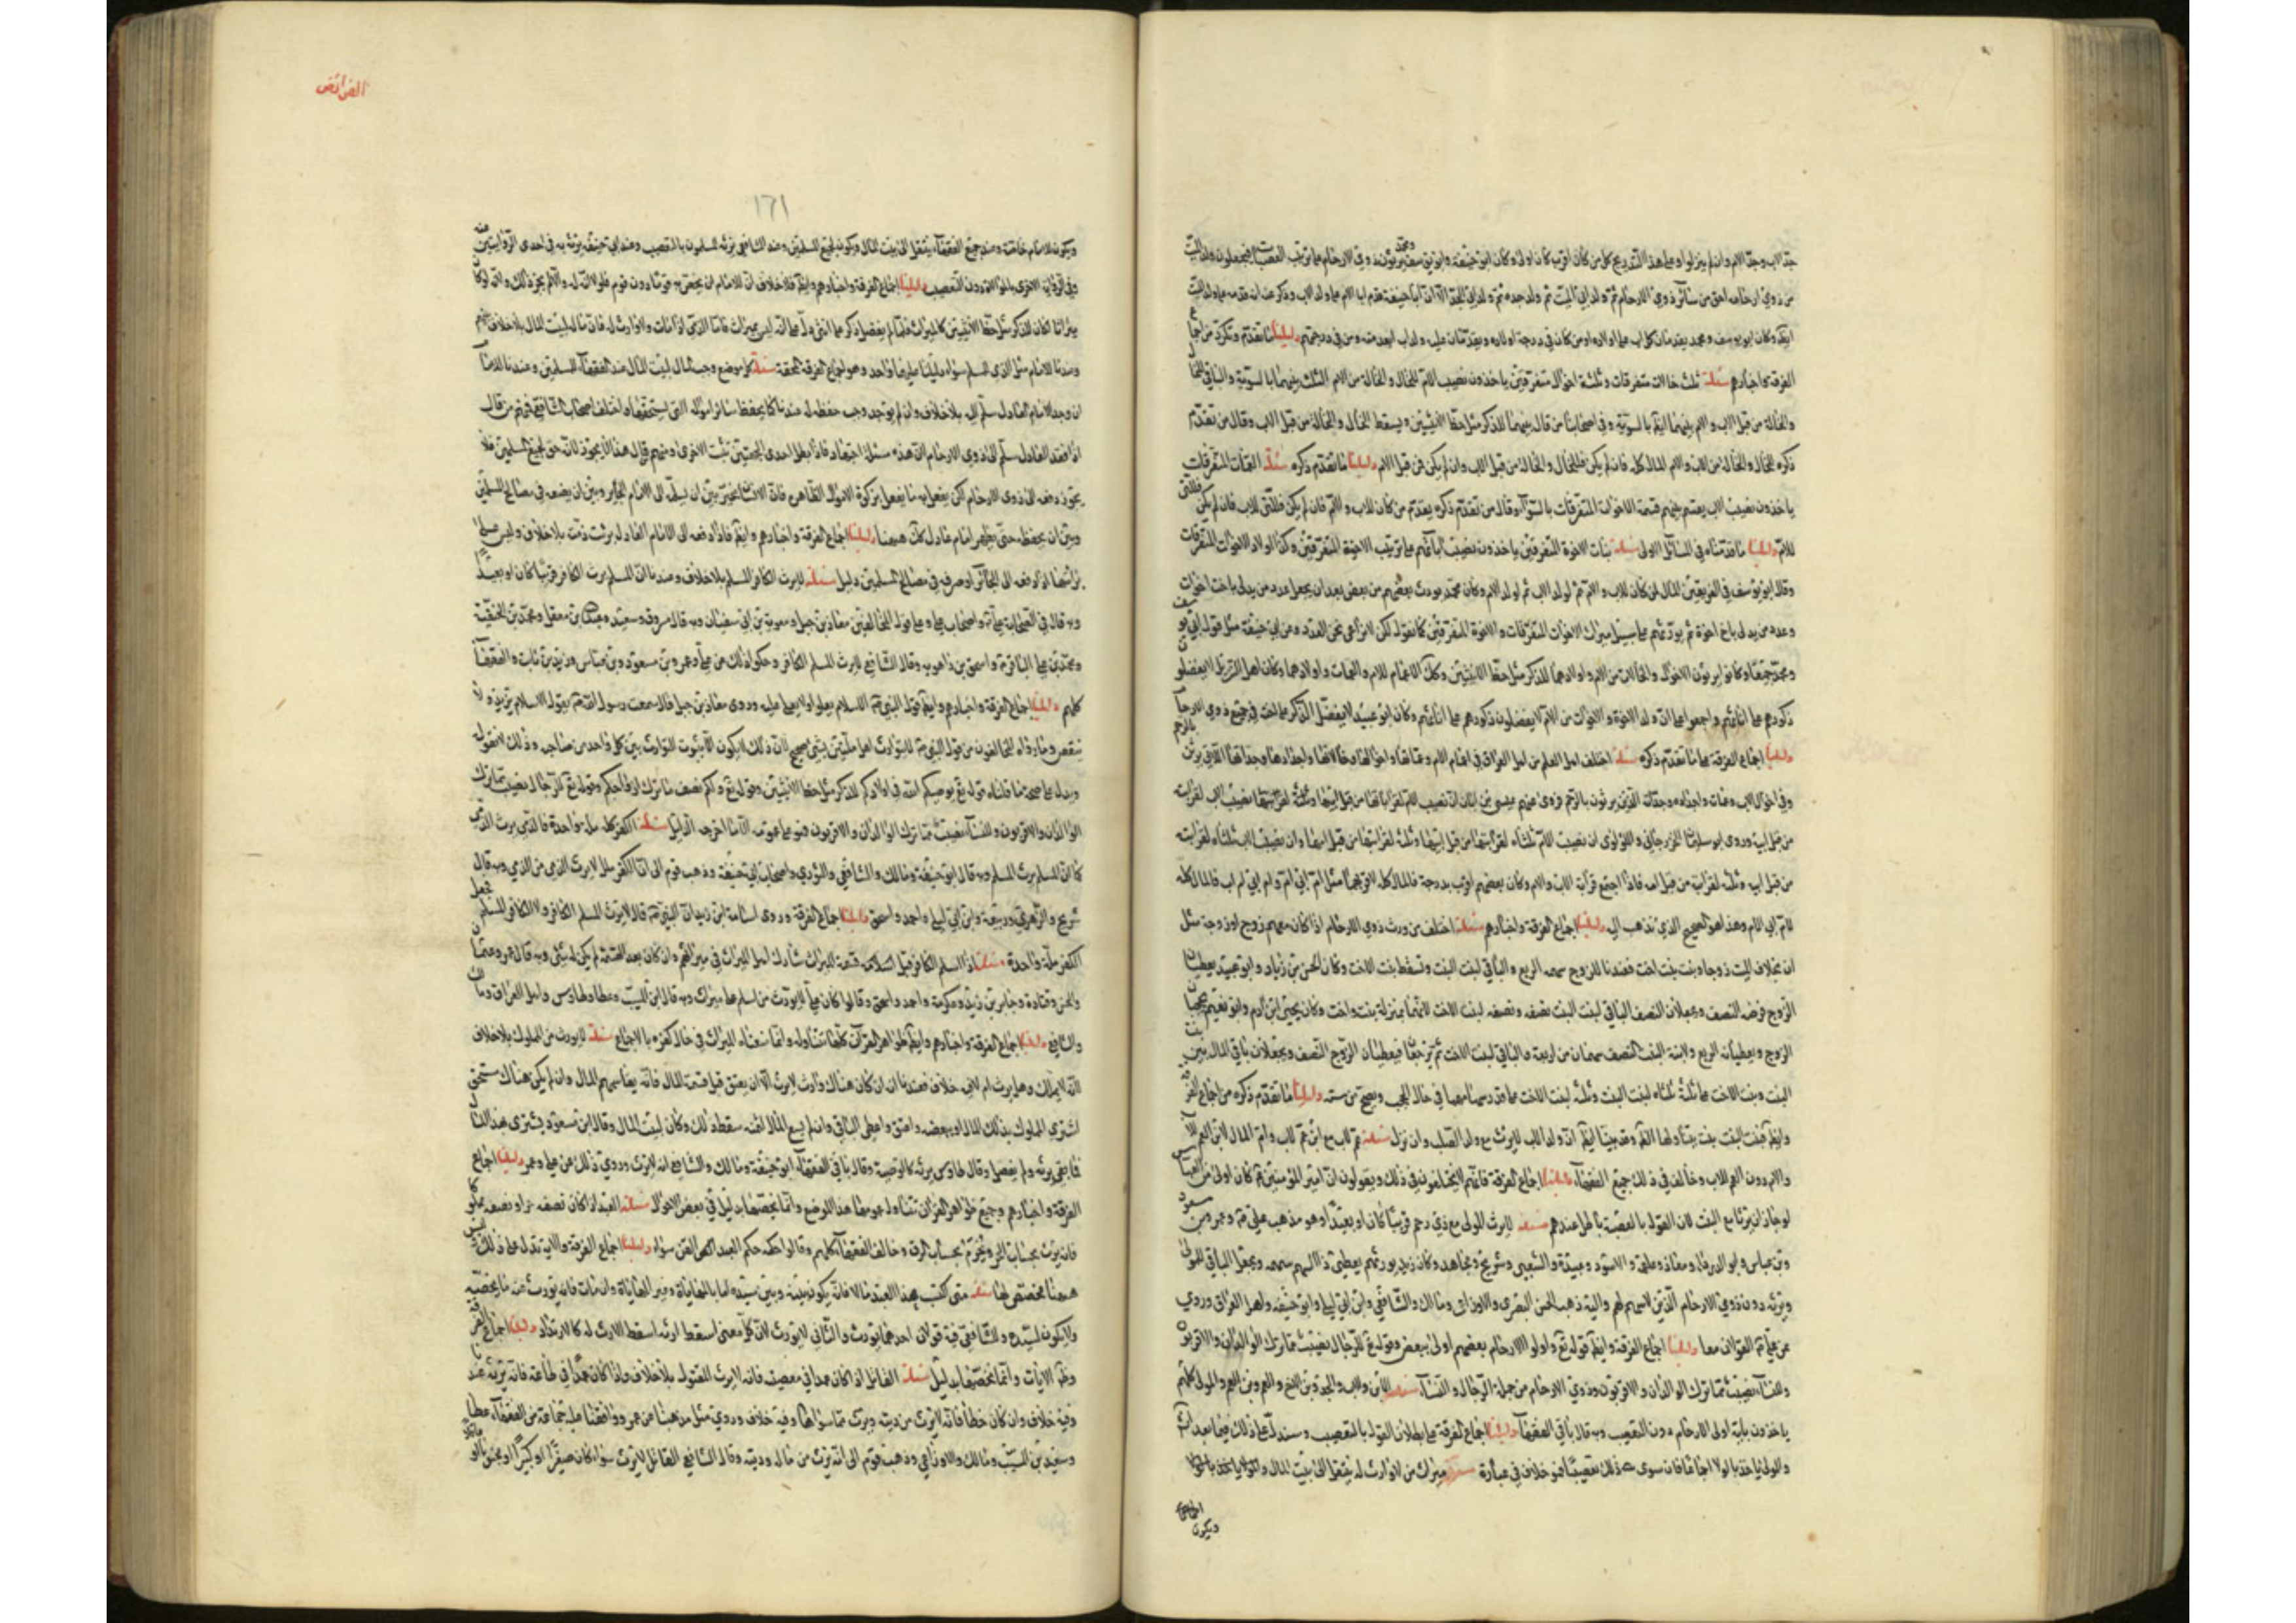 جد الاب وجد الام وان لم ينزلوا وعلى هذا التدريج كل من كان اقرب كان اولى وكان ابو حنيفة وابو يوسف ومحمد يورثون ذوي الارحام على ترتيب العصبات فيجعلون ولد الميت
من ذوي ارحامه احق من سائر ذوي الارحام ثم ولد ابي الميت ثم ولد جده ثم ولد ابي الجد الا ان ابا حنيفة قدم ابا الام على ولد الاب وذكر عنه انه قدمه على ولد الميت
ايضا وكان ابو يوسف ومحمد يقدمان كل اب على اولاده ومن كان في درجة اولاده ويقدمان عليه ولد اب ابعد منه ومن في درجتهم دليلنا ما تقدم وتكرر من اجماع
الفرقة واخبارهم مسئلة ثلث خالات متفرقات وثلثة اخوال متفرقين ياخذون نصيب الام للخال والخالة من الام الثلث بينهما بالسوية والباقي للخال
والخالة من قبل الاب والام بينهما ايضا بالسوية وفي اصحابنا من قال بينهما للذكر مثل حظ الانثيين ويسقط الخال والخالة من قبل الاب وقال من تقدم
ذكره للخال والخالة من الاب والام المال كله فان لم يكن فللخال والخالة من قبل الاب وان لم يكن فمن قبل الام دليلنا ما تقدم ذكره مسئلة العمات المتفرقات
ياخذون نصيب الاب يقتسم بينهم قسمة الاخوات المتفرقات بالسواء وقال من تقدم ذكره يقدم من كان للاب والام فان لم يكن فللتي للاب فان لم يكن فللتي
للام دليلنا ما قدمناه في المسائل الاولى مسئلة بنات الاخوة المتفرقين ياخذون نصيب ابائهم على ترتيب الاخوة المتفرقين وكذا اولاد الاخوات المتفرقات
وقال ابو يوسف في الفريقين المال لمن كان للاب والام ثم لولد الاب ثم لولد الام وكان محمد يورث بعضهم من بعض بعد ان يجعل عدد من يدلي باخت اخوات
وعدد من يدلي باخ اخوة ثم يورثهم على سبيل ميراث الاخوات المتفرقات والاخوة المتفرقين كما نقوله لكن لا نراعي نحن العدد وعن ابي حنيفة مثل قول ابي يوسف
ومحمد جميعا وكانوا يورثون الاخوال والخالات من الام واولادهما للذكر مثل حظ الانثيين وكذلك الاعمام للام والعمات واولادهما وكان اهل التنزيل لا يفضلون
ذكورهم على اناثهم واجمعوا على ان ولد الاخوة والاخوات من الام لا يفضلون ذكورهم على اناثهم وكان ابو عبيد لا يفضل الذكر على الانثى في جميع ذوي الارحام
دليلنا اجماع الفرقة على ما تقدم ذكره مسئلة اختلف اهل العلم من اهل العراق في اعمام الام وعماتها واخوالها وخالاتها واجدادها وجداتها الذين يرثن بالرحم
وفي اخوال الاب وعماته واجداده وجداته الذين يرثون بالرحم فروى عنهم عيسى بن ابان ان نصيب الام لقراباتها من قبل ابيها
من قبل ابيه وروى ابو سليمان الجوزجاني واللؤلؤي ان نصيب الام ثلثاه لقرابتها من قبل ابيها وثلثه لقرابتها من قبل امها وان نصيب الاب ثلثاه لقرابته
من قبل ابيه وثلثه لقرابته من قبل امه فاذا اجتمع قرابة الاب والام وكان بعضهم اقرب بدرجة فالمال كله لاقربهما مثل ام ابي ام وام ابي ام اب فالمال كله
لام ابي الام وهذا هو الصحيح الذي نذهب اليه دليلنا اجماع الفرقة واخبارهم مسئلة اختلف من ورث ذوي الارحام اذا كان معهم زوج او زوجة مثل
ان يخلف الميت زوجا وبنت بنت وبنت اخت فعندنا للزوج سهمه الربع والباقي لبنت البنت وتسقط بنت الاخت وكان الحسن بن زياد وابو عبيد يعطيان
الزوج فرضه النصف ويجعلان النصف الباقي لبنت البنت نصفه ونصفه لبنت الاخت لانهما بمنزلة بنت واخت وكان يحيى بن ادم وابو نعيم يحجبان
الزوج ويعطيانه الربع ولابنة البنت النصف سهمان من اربعة والباقي لبنت الاخت ثم يرجعان فيعطيان الزوج النصف ويجعلان باقي المال بين بنت
البنت وبنت الاخت على ثلثة ثلثاه لبنت البنت وثلثه لبنت الاخت على قدر سهامهما في حال الحجب ويصح من ستة دليلنا ما تقدم ذكره من اجماع الفرقة
وايضا فبنت البنت بنت يتناولها الظاهر وقد بينا ايضا ان ولد الاب لا يرث مع ولد الصلب وان نزل مسئلة عم لاب مع ابن عم لاب وام المال لابن العم للاب
والام دون العم للاب وخالف في ذلك جميع الفقهاء دليلنا اجماع الفرقة فانهم لا يختلفون في ذلك ويقولون ان امير المؤمنين ع كان اولى من العباس
لو جاز ان يرث مع البنت لان القول بالعصبة باطل عندهم مسئلة لا يرث المولى مع ذي رحم قريبا كان او بعيدا وهو مذهب علي ع وعمر وبن مسعود
وبن عباس وابو الدرداء ومعاذ وعلقمة والاسود وعبيدة والشعبي وشريح ومجاهد وكان زيد يورثهم يعطي ذا السهم سهمه ويجعل الباقي للمولى
ويرثه دون ذوي الارحام الذين لا سهم لهم واليه ذهب الحسن البصري والاوزاعي ومالك والشافعي وابن ابي ليلى وابو حنيفة واهل العراق وروي
عن علي ع القولان معا دليلنا اجماع الفرقة وايضا قوله تع واولو الارحام بعضهم اولى ببعض وقوله تع للرجال نصيب مما ترك الوالدان والاقربون
وللنساء نصيب مما ترك الوالدان والاقربون وذوي الارحام من جملة الرجال والنساء مسئلة الابن والاب والجد وبن الاخ والعم وبن العم والمولى كلهم
ياخذون باية اولى الارحام دون التعصيب وبه قال باقي الفقهاء دليلنا اجماع الفرقة على بطلان القول بالتعصيب وسندل على ذلك فيما بعد انشاء
والمولى ياخذ بالولاء اجماعا فان سوى ذلك تعصيبا فهو خلاف في عبارة مسئلة ميراث من لا وارث له ينتقل الى بيت المال
ويكون
الفرائض
١٦١
ويكون للامام خاصة وعند جميع الفقهاء ينتقل الى بيت المال ويكون لجميع المسلمين وعند الشافعي يرثه المسلمون بالتعصيب وعند ابي حنيفة يرثه به في احدى الروايتين عنه
وفي الرواية الاخرى بالموالاة دون التعصيب دليلنا اجماع الفرقة واخبارهم وايضا فلا خلاف ان للامام ان يخص به قوما دون قوم فلولا انه له والا لم يجز ذلك وانه لو كان
ميراثا لكان للذكر مثل حظ الانثيين كالميراث فلما لم يفضل ذكر على انثى دل على انه ليس بميراث فاما الذمي اذا مات ولا وارث له فان ماله لبيت المال بلا خلاف
وعندنا للامام مثل الذي للمسلم سواء دليلنا عليهما واحد وهو اجماع الفرقة المحقة مسئلة كل موضع وجب المال لبيت المال عند الفقهاء للمسلمين وعندنا للامام
ان وجد الامام العادل سلم اليه بلا خلاف وان لم يوجد وجب حفظه له عندنا كما يحفظ سائر امواله التي يستحقها واختلف اصحاب الشافعي فمنهم من قال
اذا فقد العادل سلم الى ذوي الارحام لان هذه مسئلة اجتهاد فاذا بطل احدى الجهتين ثبت الاخرى ومنهم قال هذا لا يجوز لانه حق لجميع المسلمين فلا
يجوز دفعه الى ذوي الارحام لكن يفعل به ما يفعل بزكوة الاموال الظاهرة فان الانسان مخير بين ان يسلمه الى الامام الجاير وبين ان يضعه في مصالح المسلمين
وبين ان يحفظه حتى يظهر امام عادل كذلك ههنا دليلنا اجماع الفرقة واخبارهم وايضا فاذا دفعه الى الامام العادل برئت ذمته بلا خلاف وليس على
براءتها اذا دفعه الى الجائر او صرفه في مصالح المسلمين دليل مسئلة لا يرث الكافر المسلم بلا خلاف وعندنا ان المسلم يرث الكافر قريبا كان او بعيدا
وبه قال في الصحابة علي ع واصحابه على قول المخالفين معاذ بن جبل ومعوية بن ابي سفيان وبه قال مسروق وسعيد وعبد الله بن معقل ومحمد بن الحنفية
ومحمد بن علي الباقر ع واسحق بن راهويه وقال الشافعي لا يرث المسلم الكافر وحكوا ذلك عن علي وعمر وبن مسعود وبن عباس وزيد بن ثابت والفقهاء
كلهم دليلنا اجماع الفرقة واخبارهم وايضا قول النبي ص الاسلام يعلو ولا يعلى عليه وروى معاذ بن جبل قال سمعت رسول الله ص يقول الاسلام يزيد ولا
ينقص وما رواه المخالفون من قول النبي ص لا يتوارث اهل ملتين بشئ صحيح لان ذلك لا يكون الا بثبوت التوارث بين كل واحد من صاحبه وذلك لا نقوله
ويدل على صحة ما قلناه قوله تع يوصيكم الله في اولادكم للذكر مثل حظ الانثيين وقوله تع ولكم نصف ما ترك ازواجكم وقوله تع للرجال نصيب مما ترك
الوالدان والاقربون وللنساء نصيب مما ترك الوالدان والاقربون فهو على عمومه الا ما اخرجه الدليل مسئلة الكفر كله ملة واحدة فالذمي يرث الذمي
كما ان المسلم يرث المسلم وبه قال ابو حنيفة ومالك والشافعي والثوري واصحاب ابي حنيفة وذهب قوم الى ان الكفر ملل لا يرث الذمي من الذمي وبه قال
شريح والزهري وربيعة وابن ابي ليلى واحمد واسحق دليلنا اجماع الفرقة وروى اسامة بن زيد ان النبي ص قال لا يرث المسلم الكافر ولا الكافر المسلم فجعل
الكفر ملة واحدة مسئلة اذا اسلم الكافر قبل قسمة الميراث شارك اهل الميراث في ميراثهم وان كان بعد القسمة لم يكن له شئ وبه قال عمر وعثمان
والحسن وقتادة وجابر بن زيد وعكرمة واحمد واسحق وقالوا كان علي لا يورث من اسلم على ميراث وبه قال ابن المسيب وعطا وطاوس واهل العراق ومالك
والشافعي دليلنا اجماع الفرقة واخبارهم وايضا ظواهر القران كلها تتناوله وانما منعناه الميراث في حال كفره بالاجماع مسئلة لا يورث من المملوك بلا خلاف
لانه لا يملك وهل يرث ام لا فيه خلاف فعندنا انه ان كان هناك وارث لا يرث الا ان يعتق قبل قسمة المال فانه يقاسمهم المال وان لم يكن هناك مستحق
اشتري المملوك بذلك المال او بعضه واعتق واعطي الباقي وان لم يسع المال لثمنه سقط ذلك وكان لبيت المال وقال ابن مسعود يشترى بهذا المال
فما بقي يرثه ولم يفصل وقال طاوس يرثه كالوصية وقال باقي الفقهاء ابو حنيفة ومالك والشافعي انه لا يرث وروي ذلك عن علي وعمر دليلنا اجماع
الفرقة واخبارهم وجميع ظواهر القران تتناول بعمومها هذا الموضع وانما نخصها بدليل في بعض الاحوال مسئلة العبد اذا كان نصفه حرا ونصفه مملوكا
فانه يرث بحساب الحرية ويحرم بحساب الرق وخالف الفقهاء كلهم وقالوا حكمه حكم العبد القن سواء دليلنا اجماع الفرقة والاية تدل على ذلك وليس
ههنا مخصص لها مسئلة متى كسب هذا العبد مالا فانه يكون بينه وبين سيده اما بالمهاياة وغير المهاياة وان مات فانه يورث عنه ما يخصه
ولا يكون لسيده وللشافعي فيه قولان احدهما يورث والثاني لا يورث لان كل معنى اسقط ارثه اسقط الارث له كالارتداد دليلنا اجماع الفرقة
وظاهر الايات وانما نخصها بدليل مسئلة القاتل اذا كان عمدا في معصية فانه لا يرث المقتول بلا خلاف واذا كان عمدا في طاعة فانه يرثه عندنا
وفيه خلاف وان كان خطأ فانه لا يرث من ديته ويرث مما سواها وفيه خلاف وروي مثل مذهبنا عن عمر ووافقنا عليه جماعة من الفقهاء عطا
وسعيد بن المسيب ومالك والاوزاعي وذهب قوم الى انه يرث من ماله وديته وقال الشافعي القاتل لا يرث سواء كان صغيرا او كبيرا او مجنونا او